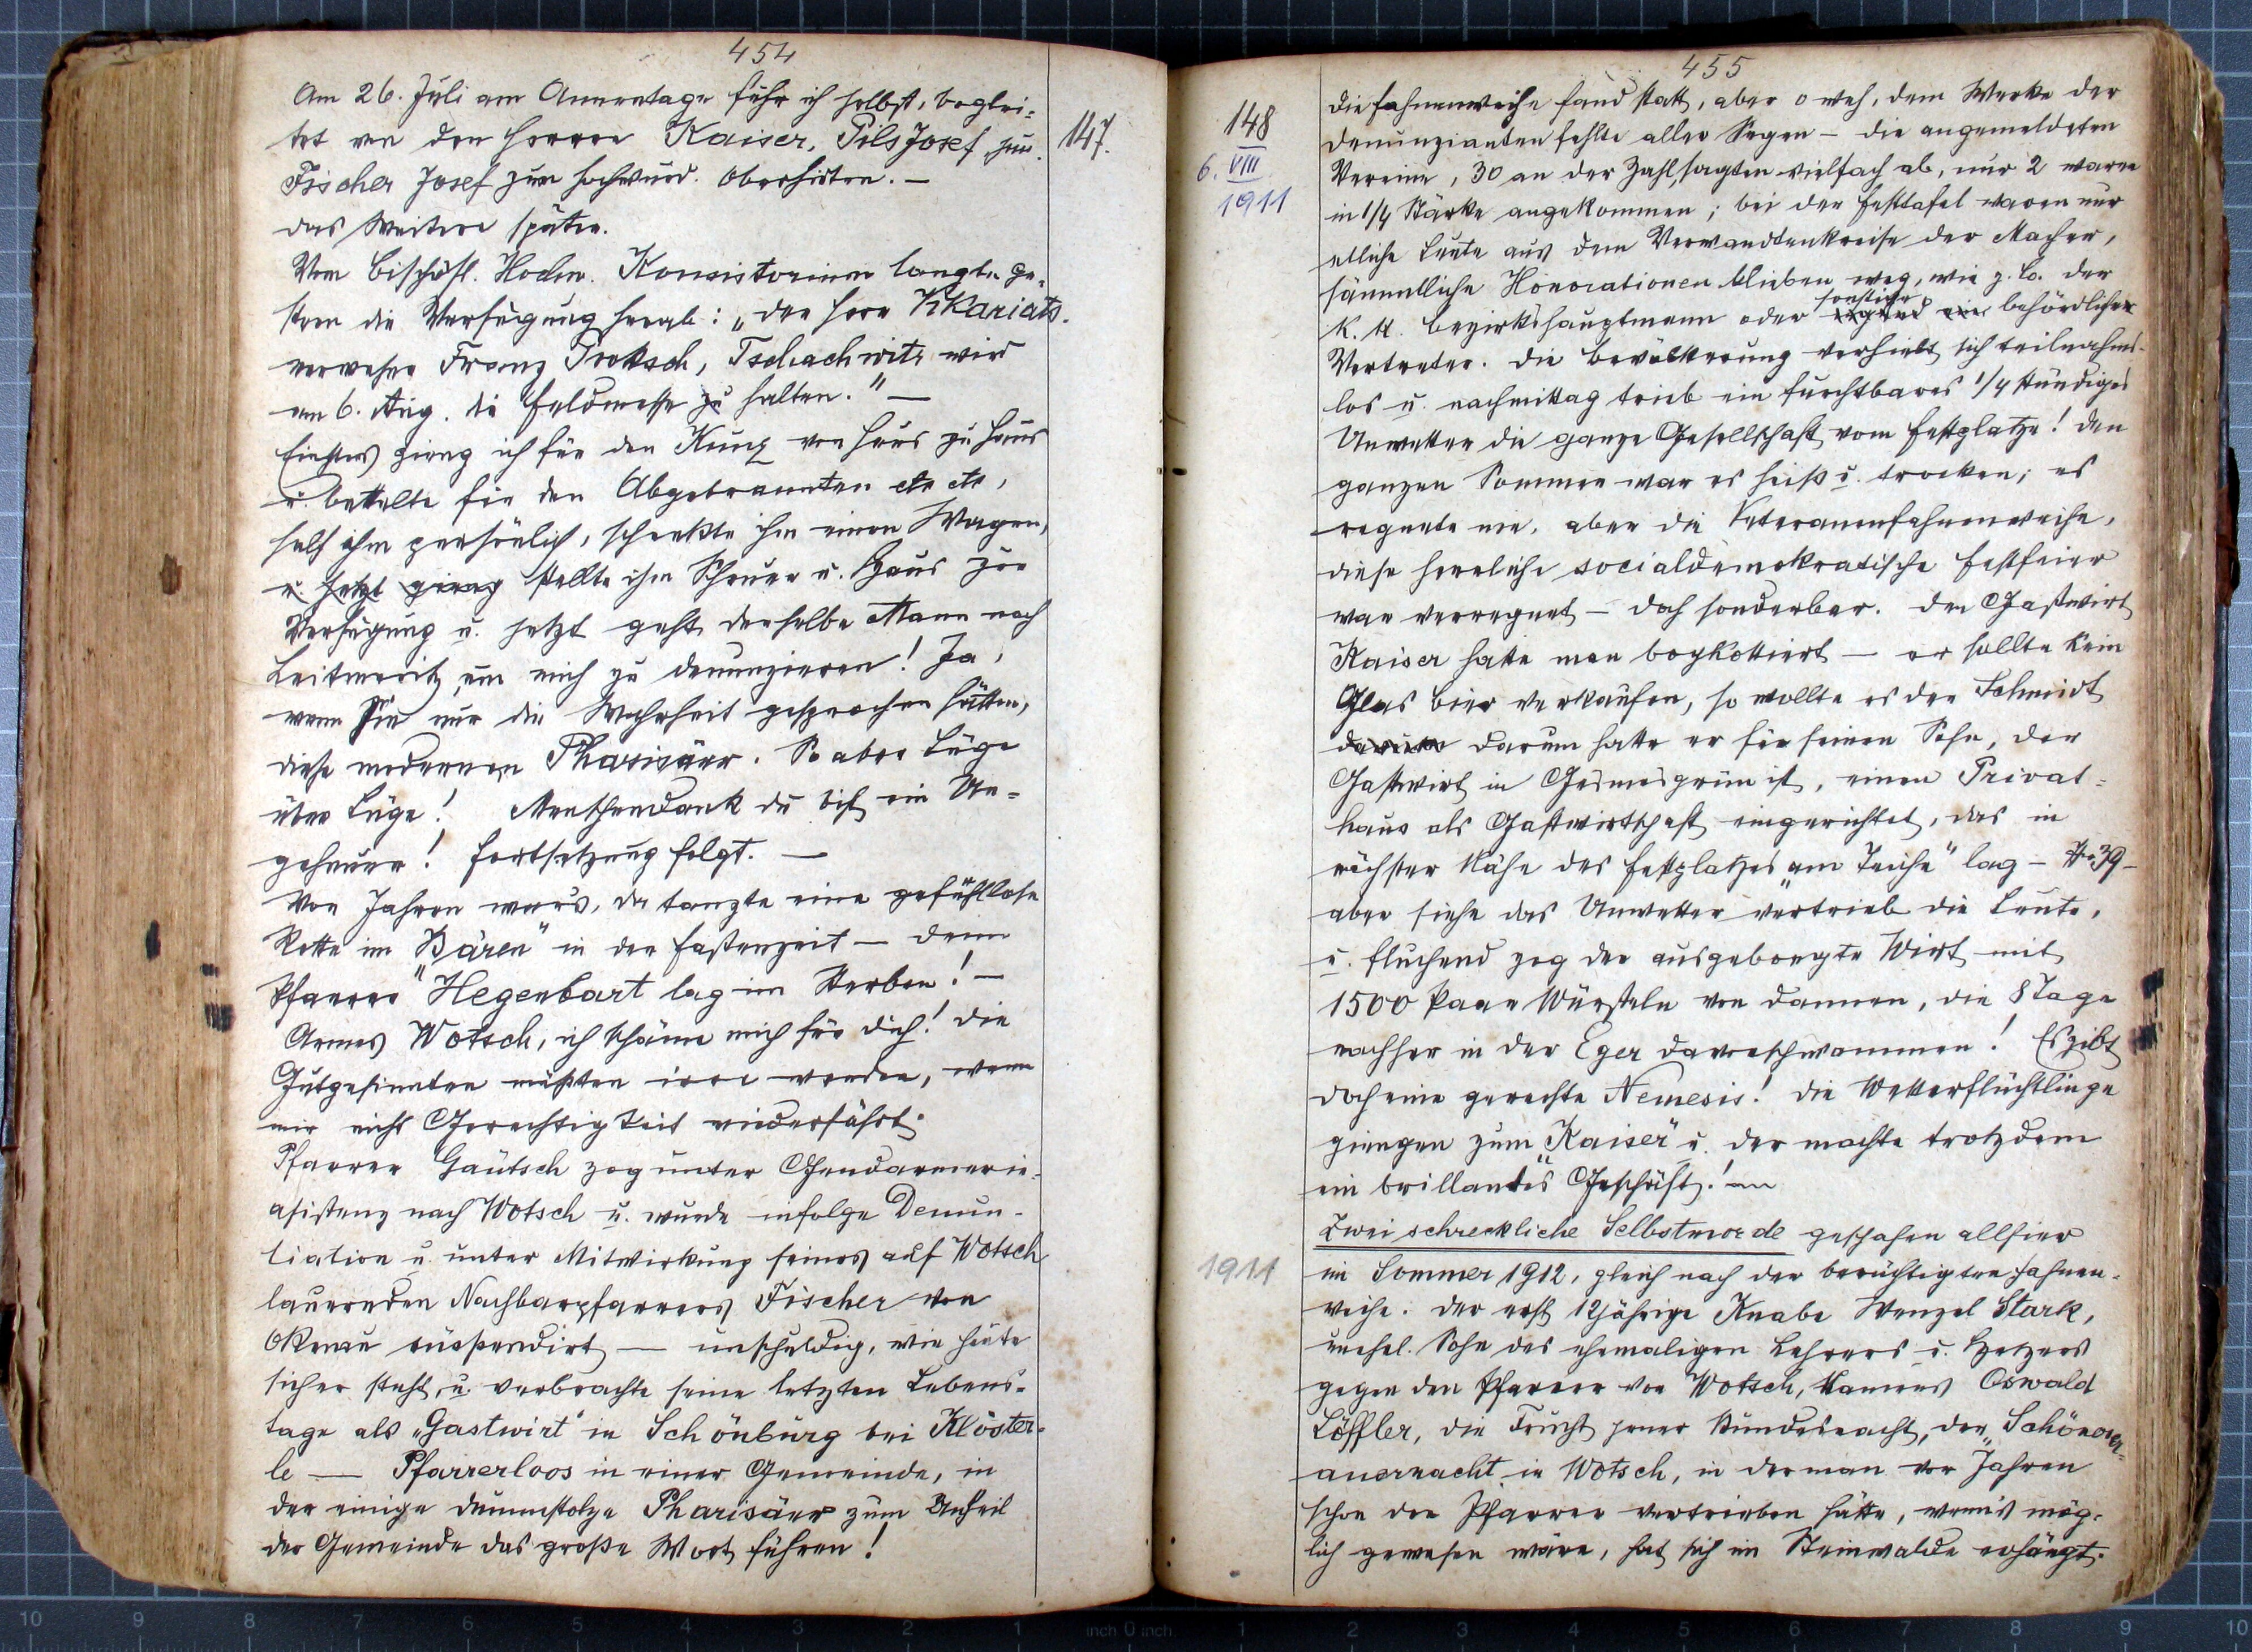 454
Am 26. Juli am Annentage fuhr ich selbst, beglei-
tet von den Herren Kaiser, Pils Josef jun.
147.
Fischer Josef zum hochwürd. Oberhirten. —
das Weitere später.
Vom bischöfl. Hochw. Konsistorium langte ge-
stern die Verfügung herab: „der Herr Vikariats-
verweser Franz Proksch, Tschachwitz wird
am 6. Aug. die Feldmesse zu halten." —
Einstens gieng ich für den Kunz von Haus zu Haus
u. bettelte für den Abgebrannten etc etc,
half ihm persönlich, schenkte ihm einen Wagen,
u. jetzt gieng stellte ihm Scheuer u. Haus zur
Verfügung u. jetzt geht derselbe Mann nach
Leitmeritz um mich zu denunzieren! Ja,
wenn Sie nur die Wahrheit gesprochen hätten,
diese modernen Pharisäer. So aber Lüge
über Lüge! Menschendank du bist ein Un-
geheuer! Fortsetzung folgt. —
Vor Jahren wars, da tanzte eine gefühllose
Rotte im „Bären" in der Fastenzeit — denn
Pfarrer Hegenbart lag im Sterben! —
Armes Wotsch, ich schäme mich für dich! Die
Gutgesinnten müßten irre werden, wenn
mir nicht Gerechtigkeit widerfährt.
Pfarrer Gautsch zog unter Gendarmerie-
asistenz nach Wotsch u. wurde infolge Denun-
tiation u. unter Mitwirkung seines auf Wotsch
lauernden Nachbarpfarrers Fischer von
Okenau suspendirt — unschuldig, wie heute
sicher steht, u. verbrachte seine letzten Lebens-
tage als „Gastwirt" in Schönburg bei Klöster-
le — Pfarrerloos in einer Gemeinde, in
der einige dummstolze Pharisäer zum Unheil
der Gemeinde das große Wort führen!
455
148
6. VIII
1911
Die Fahnenweihe fand statt, aber o weh, dem Werke der
Denunzianten fehlte aller Segen — die angemeldeten
Vereine, 30 an der Zahl, sagten vielfach ab, nur 2 waren
in 1/4 Stärke angekommen; bei der Festtafel waren nur
etliche Leute aus dem Verwandtenkreise der Macher,
sämmtliche Honorationen blieben weg, wie z. B. der
K. K. Bezirkshauptmann oder irgend ein sonstiger behördlicher
Vertreter. Die Bevölkerung verhielt sich teilnahms-
los u. nachmittag trieb ein furchtbares 1/4 stündiges
Unwetter die ganze Gesellschaft vom Festplatze! Den
ganzen Sommer war es heiß u. trocken; es
regnete nie, aber die Veteranenfahnenweihe,
diese herrliche socialdemokratische Festfeier
war verregnet — doch sonderbar. Den Gastwirt
Kaiser hatte man boykottiert — er sollte kein
Glas Bier verkaufen, so wollte es der Schmidt
darum hatte er für seinen Sohn, der
Gastwirt in Gesmesgrün ist, einen Privat-
haus als Gastwirtschaft eingerichtet, das in
nächster Nähe des Festplatzes „am Teiche" lag — Nr 39 —
aber siehe das Unwetter vertrieb die Leute,
u. fluchend zog der ausgeborgte Wirt mit
1500 Paar Würsteln von dannen, die 8 Tage
nachher in der Eger davonschwammen! Es gibt
doch eine gerechte Nemesis! Die Wetterflüchtlinge
giengen zum „Kaiser" u. der machte trotzdem
ein brillantes Geschäft!
Zwei schreckliche Selbstmorde geschahen allhier
1911
im Sommer 1912, gleich nach der berüchtigten Fahnen-
weihe. Der erst 12jährige Knabe Wenzel Stark,
unehel. Sohn des ehemaligen Lehrers u. Hetzers
gegen den Pfarrer von Wotsch, Namens Oswald
Löffler, die Frucht jener Sündesnacht, der „Schönerer-
anernacht in Wotsch, in der man vor Jahren
schon den Pfarrer vertrieben hätte, wenn's mög-
lich gewesen wäre, hat sich im Steinwalde erhängt.